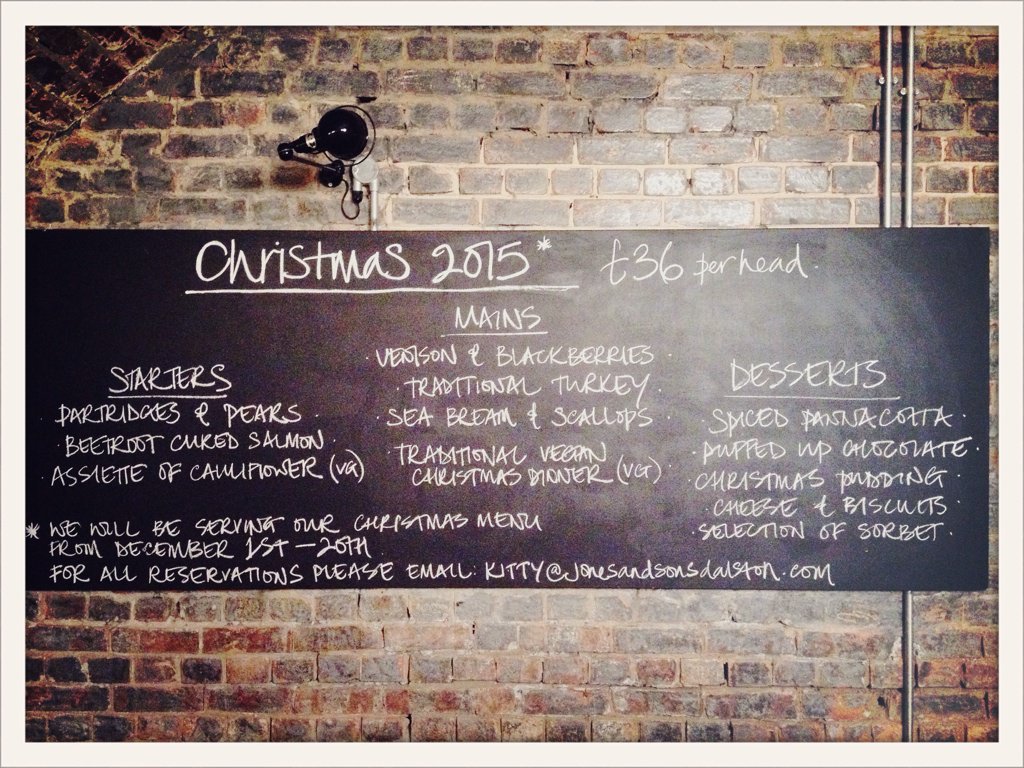 Christmas 2015* £36 per head.
STARTERS
PARTRIDGES & PEARS ·
· BEETROOT CURED SALMON ·
· ASSIETTE OF CAULIFLOWER (VG)
MAINS
· VENISON & BLACKBERRIES ·
· TRADITIONAL TURKEY ·
· SEA BREAM & SCALLOPS ·
· TRADITIONAL VEGAN
CHRISTMAS DINNER (VG) ·
DESSERTS
SPICED PANNACOTTA ·
· PUFFED UP CHOCOLATE ·
· CHRISTMAS PUDDING ·
· CHEESE & BISCUITS ·
· SELECTION OF SORBET ·
* WE WILL BE SERVING OUR CHRISTMAS MENU
FROM DECEMBER 1ST – 20TH
FOR ALL RESERVATIONS PLEASE EMAIL: KITTY@jonesandsonsdalston.com